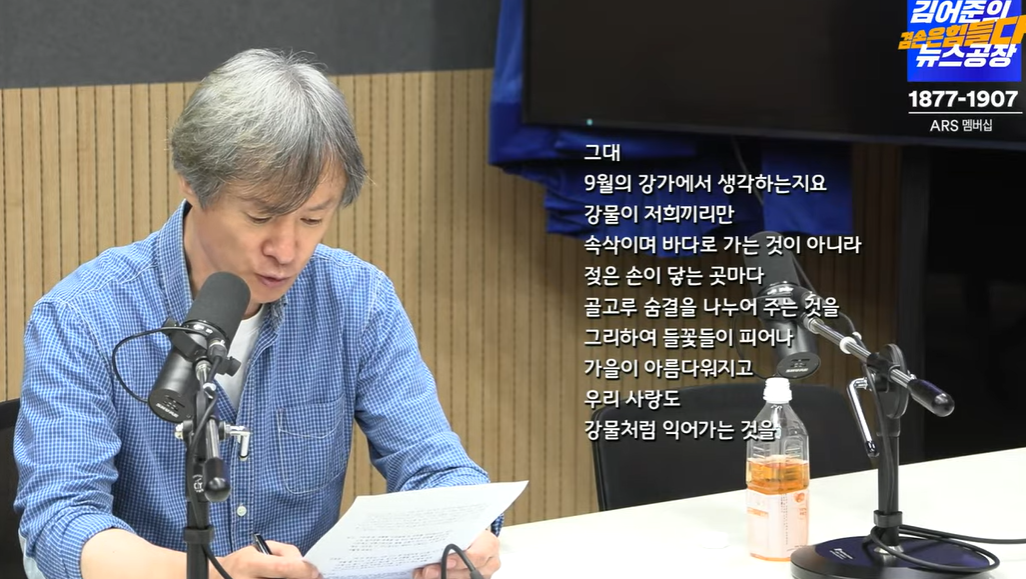 김어준의
겸손은힘들다
뉴스공장
1877-1907
ARS 멤버십
그대
9월의 강가에서 생각하는지요
강물이 저희끼리만
속삭이며 바다로 가는 것이 아니라
젖은 손이 닿는 곳마다
골고루 숨결을 나누어 주는 것을
그리하여 들꽃들이 피어나
가을이 아름다워지고
우리 사랑도
강물처럼 익어가는 것을